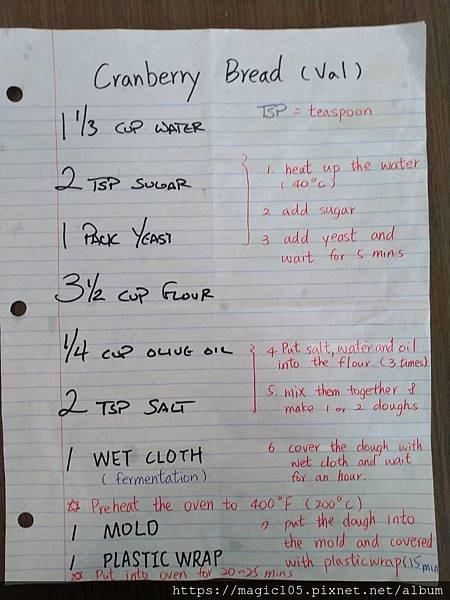 Cranberry Bread (Val)
TSP = teaspoon
1 1/3 CUP WATER
2 TSP SUGAR
1 PACK YEAST
1. heat up the water
(40°C)
2 add sugar
3 add yeast and
wait for 5 mins
3 1/2 CUP FLOUR
1/4 CUP OLIVE OIL
2 TSP SALT
4. Put salt, water and oil
into the flour (3 times)
5. mix them together &
make 1 or 2 doughs
1 WET CLOTH
(fermentation)
6. cover the dough with
wet cloth and wait
for an hour.
☆ Preheat the oven to 400°F (200°C)
1 MOLD
1 PLASTIC WRAP
7 put the dough into
the mold and covered
with plastic wrap (15 min
☆ Put into oven for 20~25 mins
https://magic105.pixnet.net/album